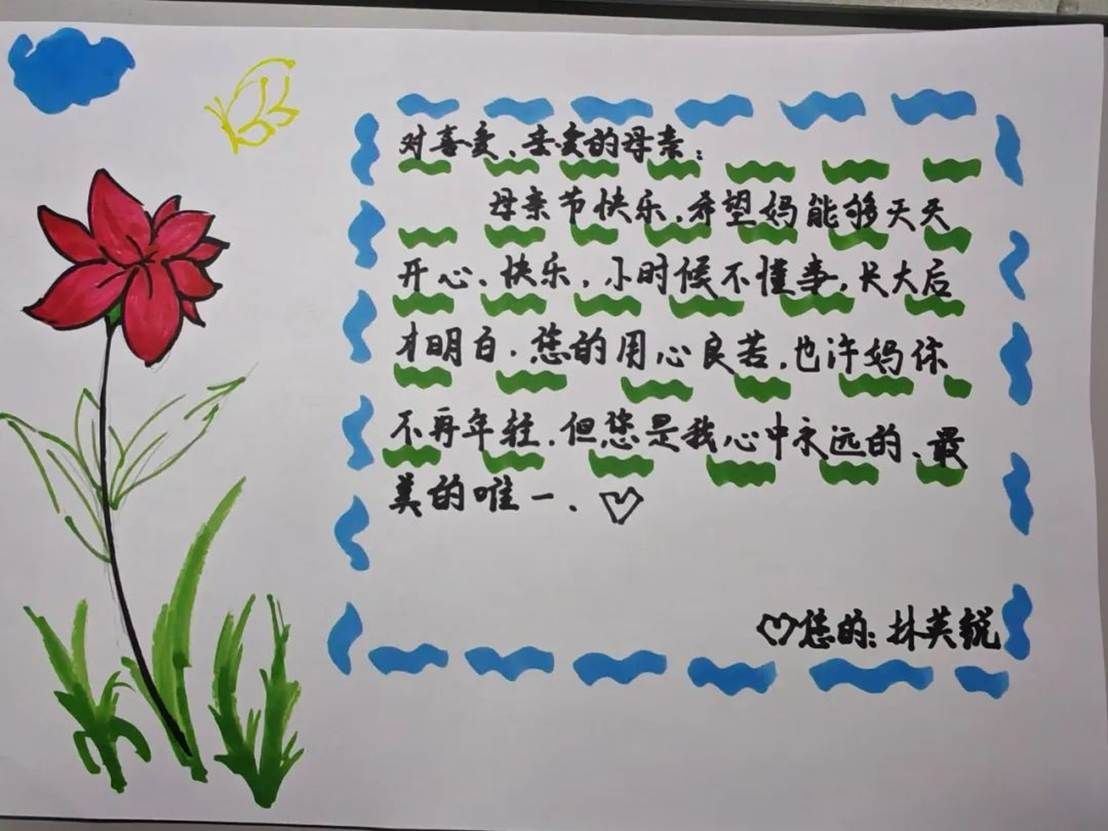 对喜爱、亲爱的母亲：
母亲节快乐，希望妈能够天天
开心、快乐，小时候不懂事，长大后
才明白，您的用心良苦，也许妈你
不再年轻，但您是我心中永远的、最
美的唯一、
您的：林英锐